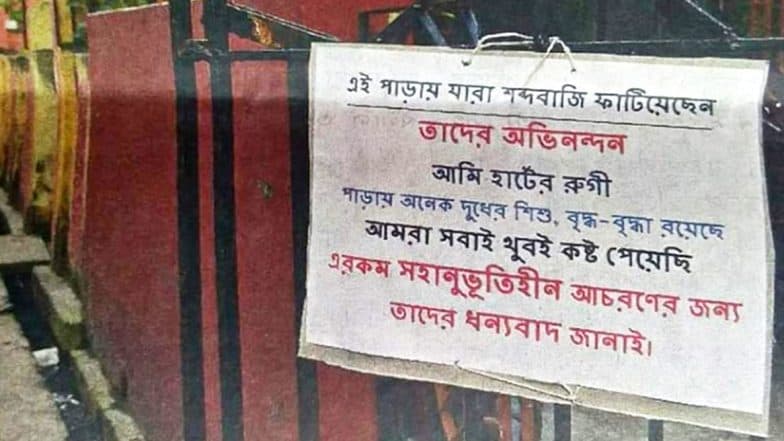 এই পাড়ায় যারা শব্দবাজি ফাটিয়েছেন
তাদের অভিনন্দন
আমি হার্টের রুগী
পাড়ায় অনেক দুধের শিশু, বৃদ্ধ-বৃদ্ধা রয়েছে
আমরা সবাই খুবই কষ্ট পেয়েছি
এরকম সহানুভূতিহীন আচরণের জন্য
তাদের ধন্যবাদ জানাই।